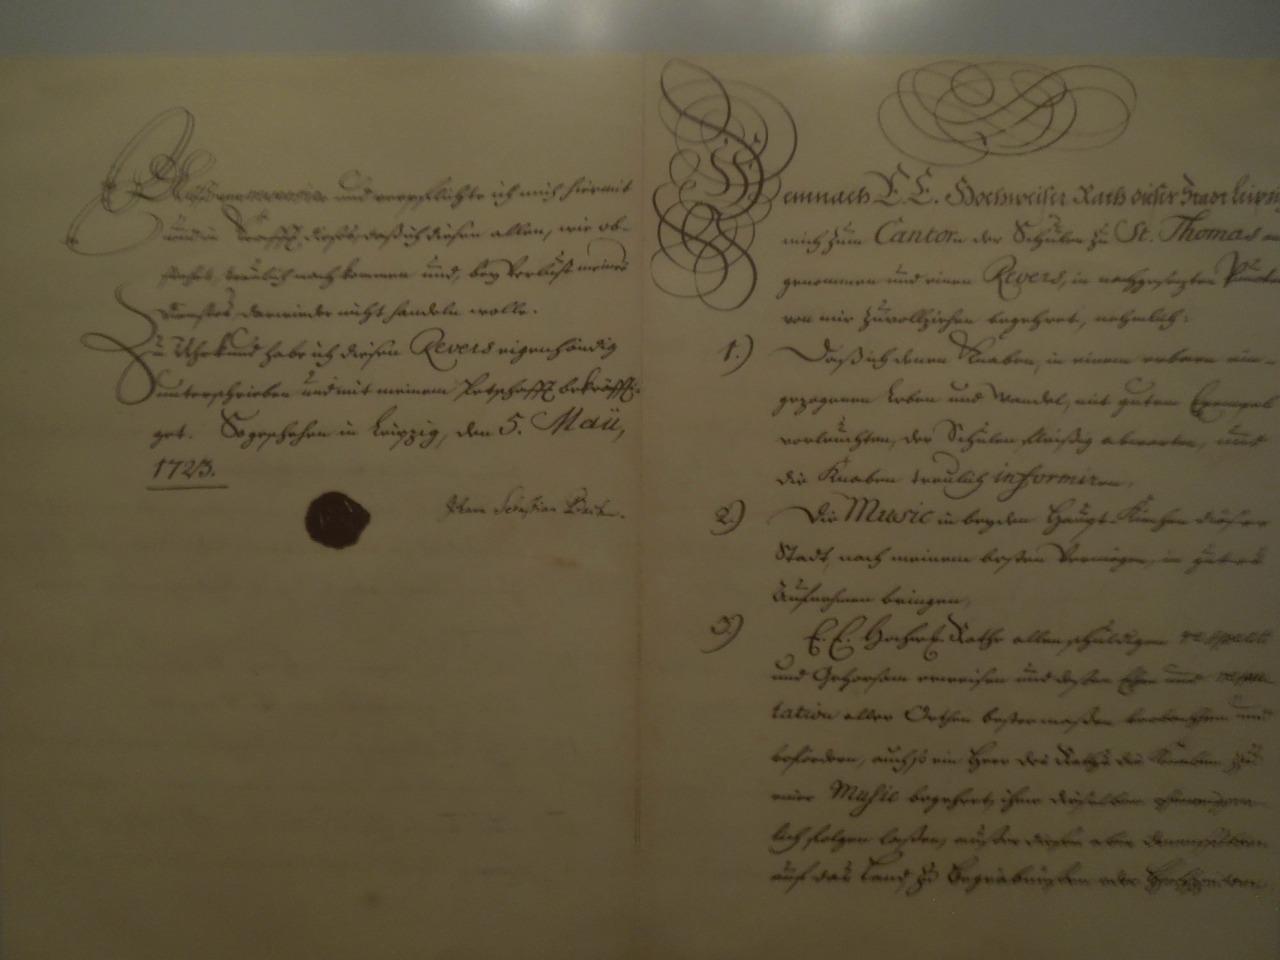 und verpflichte ich mich hiermit
und in Krafft dieses, daß ich diesen allen, wie ob-
stehet, treülich nachkommen und, bey Verlust meines
Dienstes darwieder nicht handeln wolle.
Zu Uhrkund habe ich diesen Revers eigenhändig
unterschrieben und mit meinem Petschafft bekräffti-
get. So geschehen in Leipzig, den 5. Maji,
1723.
Johann Sebastian Bach.
Demnach E. E. Hochweiser Rath dieser Stadt Leipzig
mich zum Cantorn der Schulen zu St. Thomas an
genommen und einen Revers, in nachgesetzten Puncten
von mir zu vollziehen begehret, nehmlich:
1.) Daß ich denen Knaben, in einem erbarn ein-
gezogenen Leben und Wandel, mit gutem Exempel
vorleuchten, der Schulen fleißig abwarten, und
die Knaben treulich informiren,
2.) Die Music in beyden Haupt-Kirchen dieser
Stadt, nach meinem besten Vermögen, in gutes
Aufnehmen bringen,
3.) E. E. Hochw. Rathe allen schuldigen respect
und Gehorsam erweisen und deßen Ehre und repu-
tation aller Orthen bestermaßen beobachten und
befördern, auch so ein Herr des Raths die Knaben zu
einer Music begehret, ihme dieselben
lich folgen laßen, außer diesen aber denenselben
auf das Land, zu Begräbnüßen oder Hochzeiten